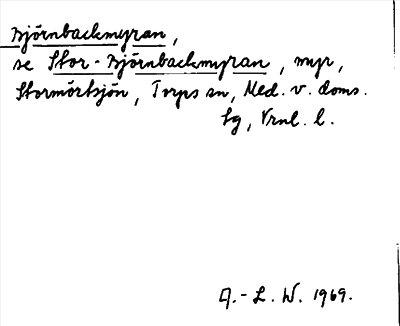 Björnbackmyran,
se Stor-Björnbackmyran, myr,
Stormörtsjön, Torps sn, Med. v. doms.
Lg, Vrnl. l.
A.-L. W. 1969.